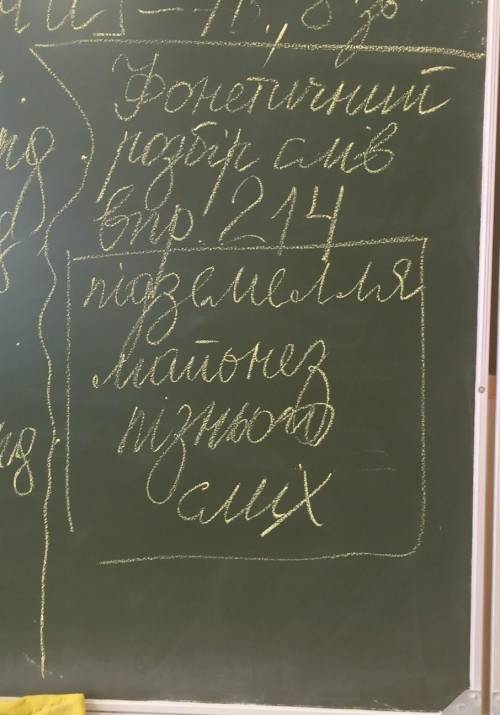 Фонетичний
розбір слів
впр. 214
підземелля
майонез
пізнього
сміх